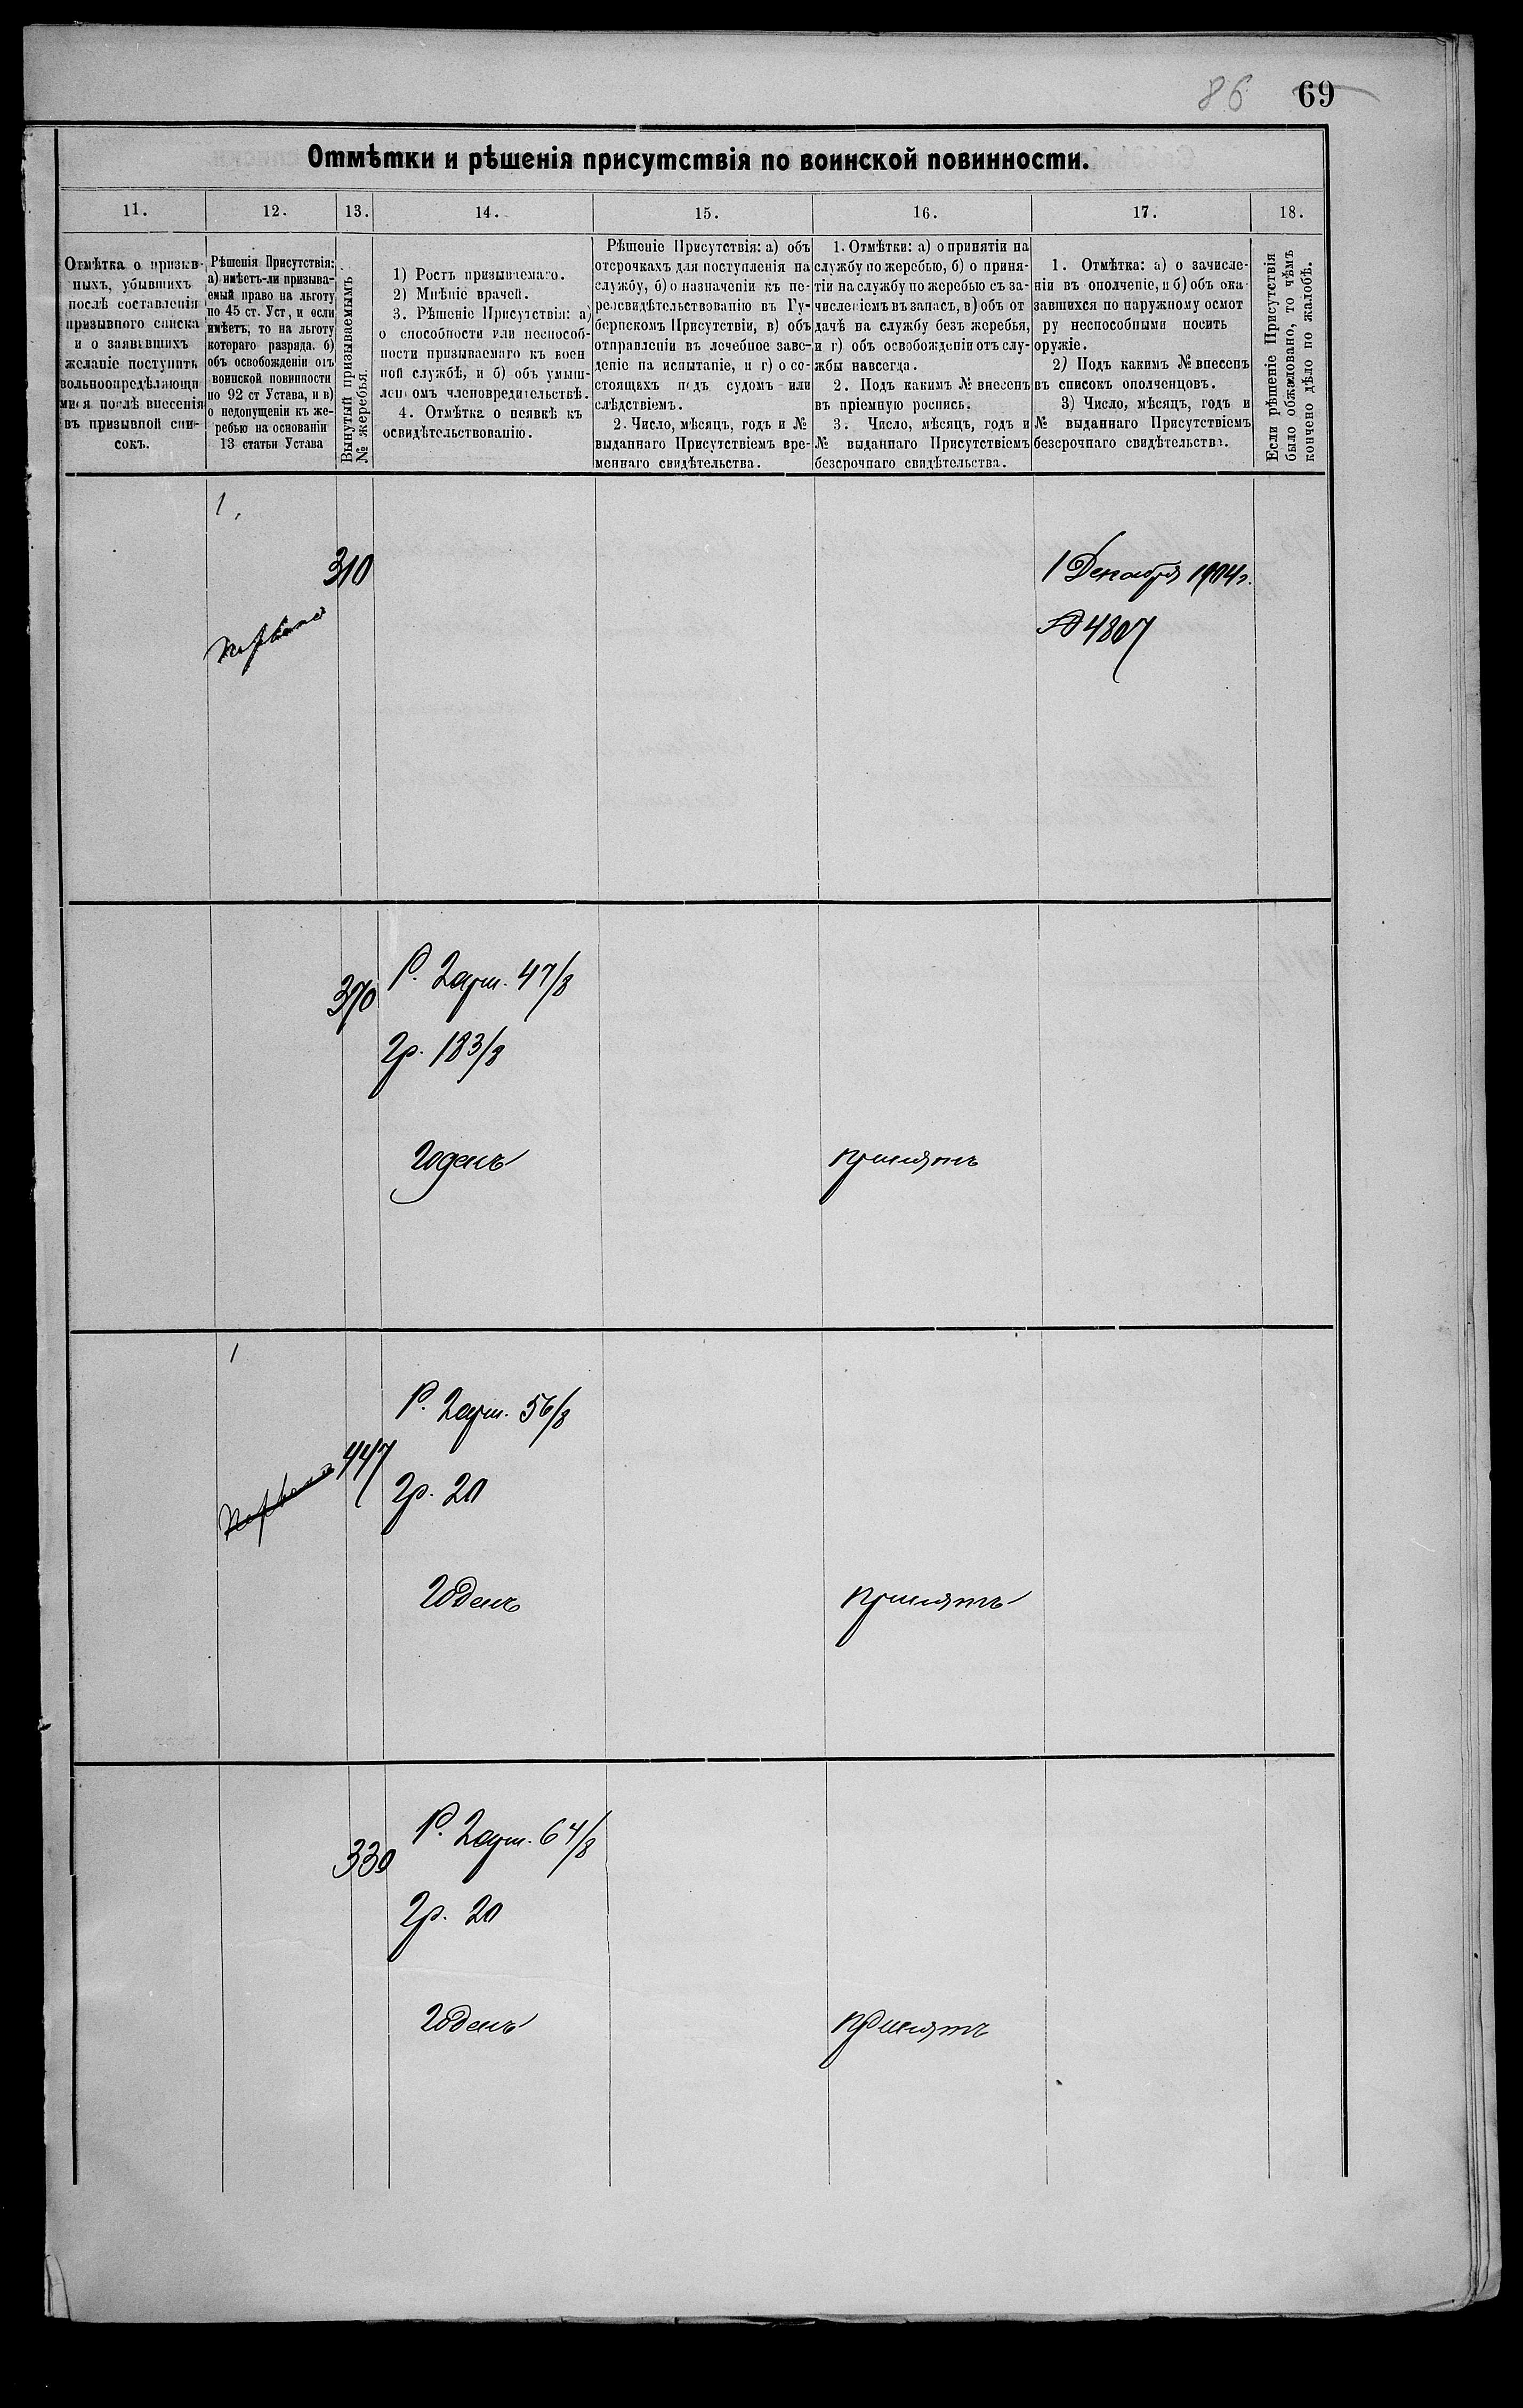 86 69
Отмѣтки и рѣшенія присутствія по воинской повинности.
11. 12. 13. 14. 15. 16. 17. 18.
Отмѣтка о призыв-
ныхъ, убывшихъ
послѣ составленія
призывного списка
и о заявившихъ
желаніе поступить
вольноопредѣляющи
мися послѣ внесенія
въ призывной спи-
сокъ.
Рѣшенія Присутствія:
а) имѣетъ-ли призыва-
емый право на льготу
по 45 ст. Уст, и если
имѣетъ, то на льготу
котораго разряда. б)
объ освобожденіи отъ
воинской повинности
по 92 ст Устава, и в)
о недопущеніи къ же-
ребью на основаніи
13 статьи Устава
Вынутый призываемымъ
№ жеребья.
1) Ростъ призываемаго.
2) Мнѣніе врачей.
3. Рѣшеніе Присутствія: а)
о способности или неспособ-
ности призываемаго къ воен
ной службѣ, и б) объ умыш-
леномъ членовредительствѣ.
4. Отмѣтка о неявкѣ къ
освидѣтельствованію.
Рѣшеніе Присутствія: а) объ
отсрочкахъ для поступленія на
службу, б) о назначеніи къ пе-
реосвидѣтельствованію въ Гу-
бернскомъ Присутствіи, в) объ
отправленіи въ лечебное заве-
деніе на испытаніе, и г) о со-
стоящихъ подъ судомъ или
слѣдствіемъ.
2. Число, мѣсяцъ, годъ и №
выданнаго Присутствіемъ вре-
меннаго свидѣтельства.
1. Отмѣтки: а) о принятіи на
службу по жеребью, б) о приня-
тіи на службу по жеребью съ за-
численіемъ въ запасъ, в) объ от
дачѣ на службу безъ жеребья,
и г) объ освобожденіи отъ слу-
жбы навсегда.
2. Подъ какимъ № внесенъ
въ пріемную роспись.
3. Число, мѣсяцъ, годъ и
№ выданнаго Присутствіемъ
безсрочнаго свидѣтельства.
1. Отмѣтка: а) о зачисле-
ніи въ ополченіе, и б) объ ока
завшихся по наружному осмот
ру неспособными носить
оружіе.
2) Подъ какимъ № внесенъ
въ списокъ ополченцовъ.
3) Число, мѣсяцъ, годъ и
№ выданнаго Присутствіемъ
безсрочнаго свидѣтельства.
Если рѣшеніе Присутствія
было обжаловано, то чѣмъ
кончено дѣло по жалобѣ.
1.
310
1 Декабря 1904 г.
№ 4807
370
Р. 2 арш. 4 7/8
Гр. 18 3/8
годенъ
принятъ
1
447
Р. 2 арш. 5 6/8
Гр. 20
годенъ
принятъ
330
Р. 2 арш. 6 4/8
Гр. 20
годенъ
принятъ